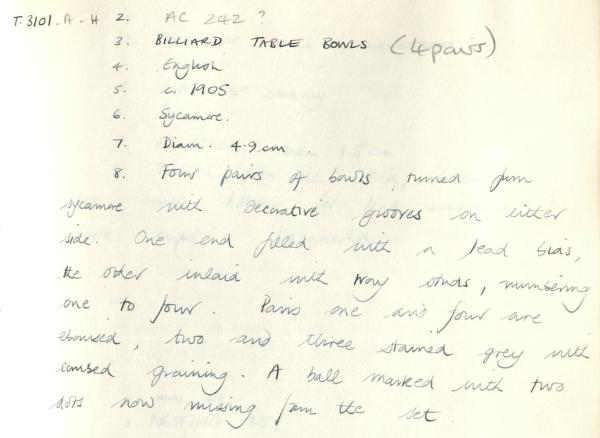 T.3101.A-H 2. AC 242 ?
3. BILLIARD TABLE BOWLS (4 pairs)
4. English
5. c. 1905.
6. Sycamore.
7. Diam. 4.9 cm.
8. Four pairs of bowls, turned from
sycamore with decorative grooves on either
side. One end filled with a lead bias,
the other inlaid with ivory studs, numbering
one to four. Pairs one and four are
ebonised, two and three stained grey with
combed graining. A ball marked with two
dots now missing from the set.